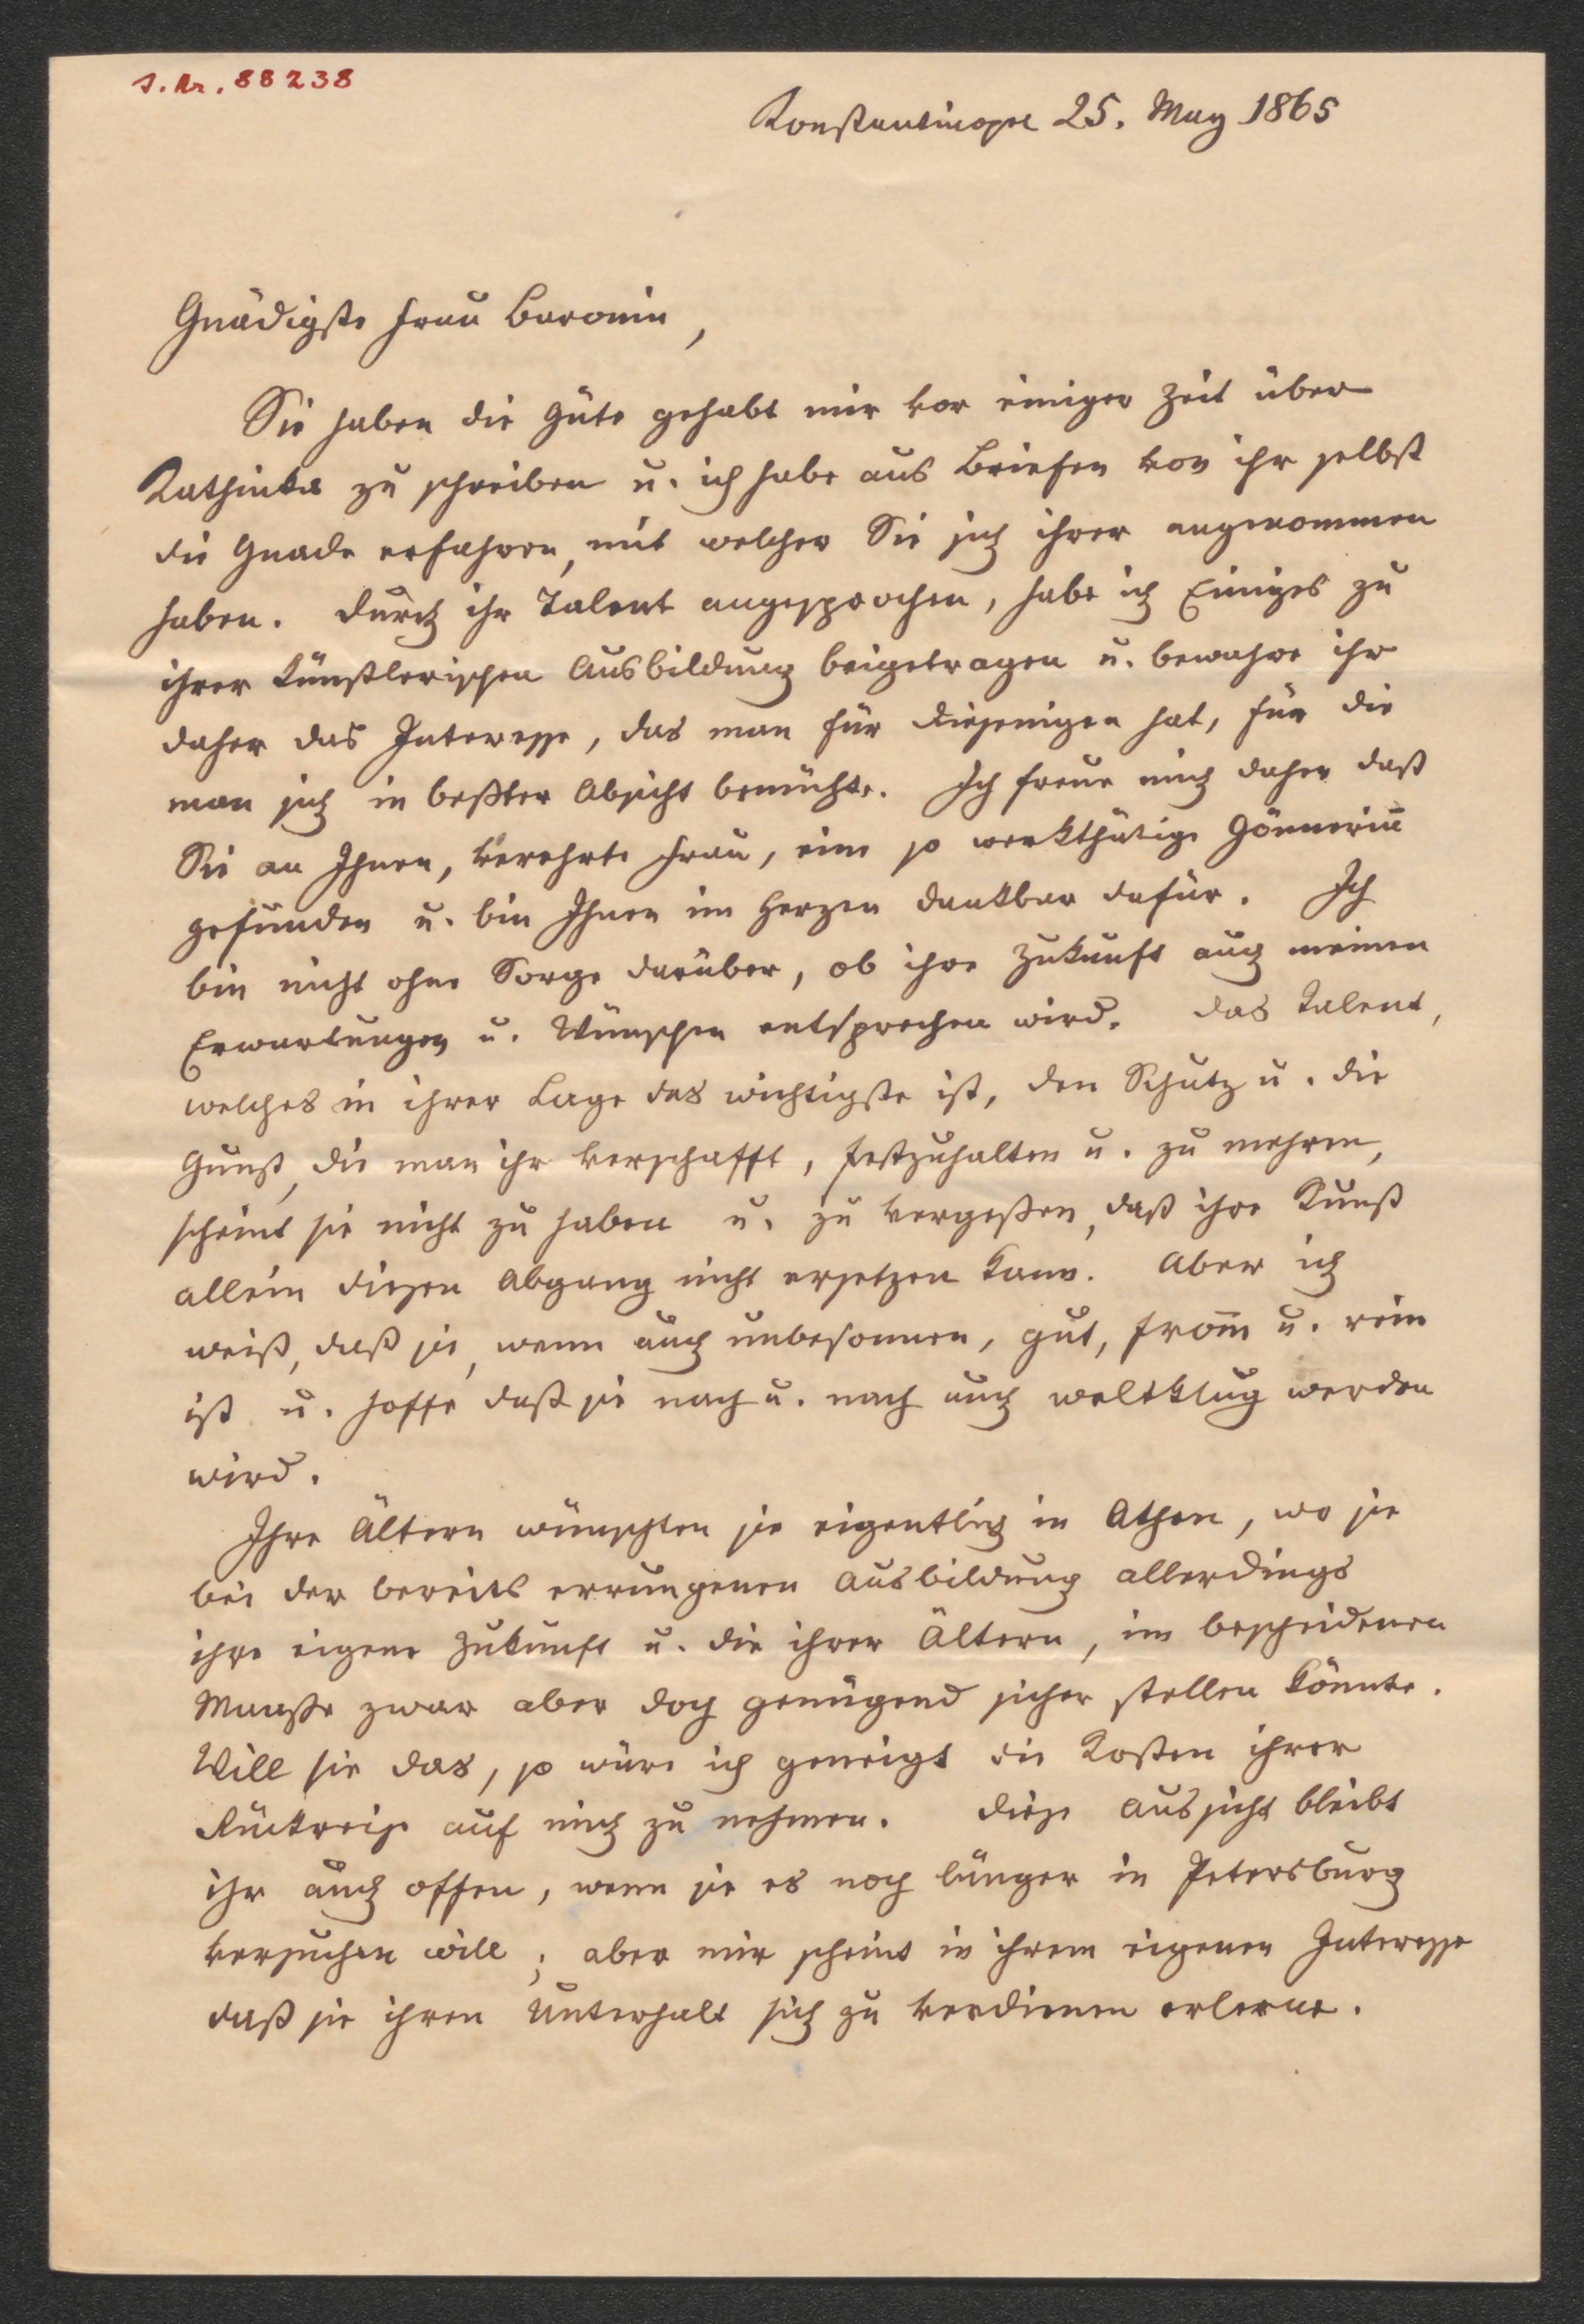 J. Nr. 88238
Konstantinopel 25. May 1865
Gnädigste Frau Baronin,
Sie haben die Güte gehabt mir vor einiger Zeit über
Kathinka zu schreiben u. ich habe aus Briefen von ihr selbst
die Gnade erfahren, mit welcher Sie sich ihrer angenommen
haben. Durch ihr Talent angesprochen, habe ich Einiges zu
ihrer künstlerischen Ausbildung beigetragen u. bewahre ihr
daher das Interesse, das man für diejenigen hat, für die
man sich in beßter Absicht bemühte. Ich freue mich daher daß
Sie an Ihnen, verehrte Frau, eine so werkthätige Gönnerin̄
gefunden u. bin Ihnen im Herzen dankbar dafür. Ich
bin nicht ohne Sorge darüber, ob ihre Zukunft auch meinen
Erwartungen u. Wünschen entsprechen wird. Das Talent,
welches in ihrer Lage das wichtigste ist, den Schutz u. die
Gunst, die man ihr verschafft, festzuhalten u. zu mehren,
scheint sie nicht zu haben u. zu vergeßen, daß ihre Kunst
allein diesen Abgang nicht ersetzen kann. Aber ich
weiß, daß sie, wenn auch unbesonnen, gut, from̄ u. rein
ist u. hoffe daß sie nach u. nach auch weltklug werden
wird.
Ihre Ältern wünschten sie eigentlich in Athen, wo sie
bei der bereits errungenen Ausbildung allerdings
ihre eigene Zukunft u. die ihrer Ältern, im bescheidenen
Maaße zwar aber doch genügend sicher stellen könnte.
Will sie das, so wäre ich geneigt die Kosten ihrer
Rückreise auf mich zu nehmen. Diese Aussicht bleibt
ihr auch offen, wenn sie es noch länger in Petersburg
versuchen will; aber mir scheint in ihrem eigenen Interesse
daß sie ihren Unterhalt sich zu verdienen erlerne.